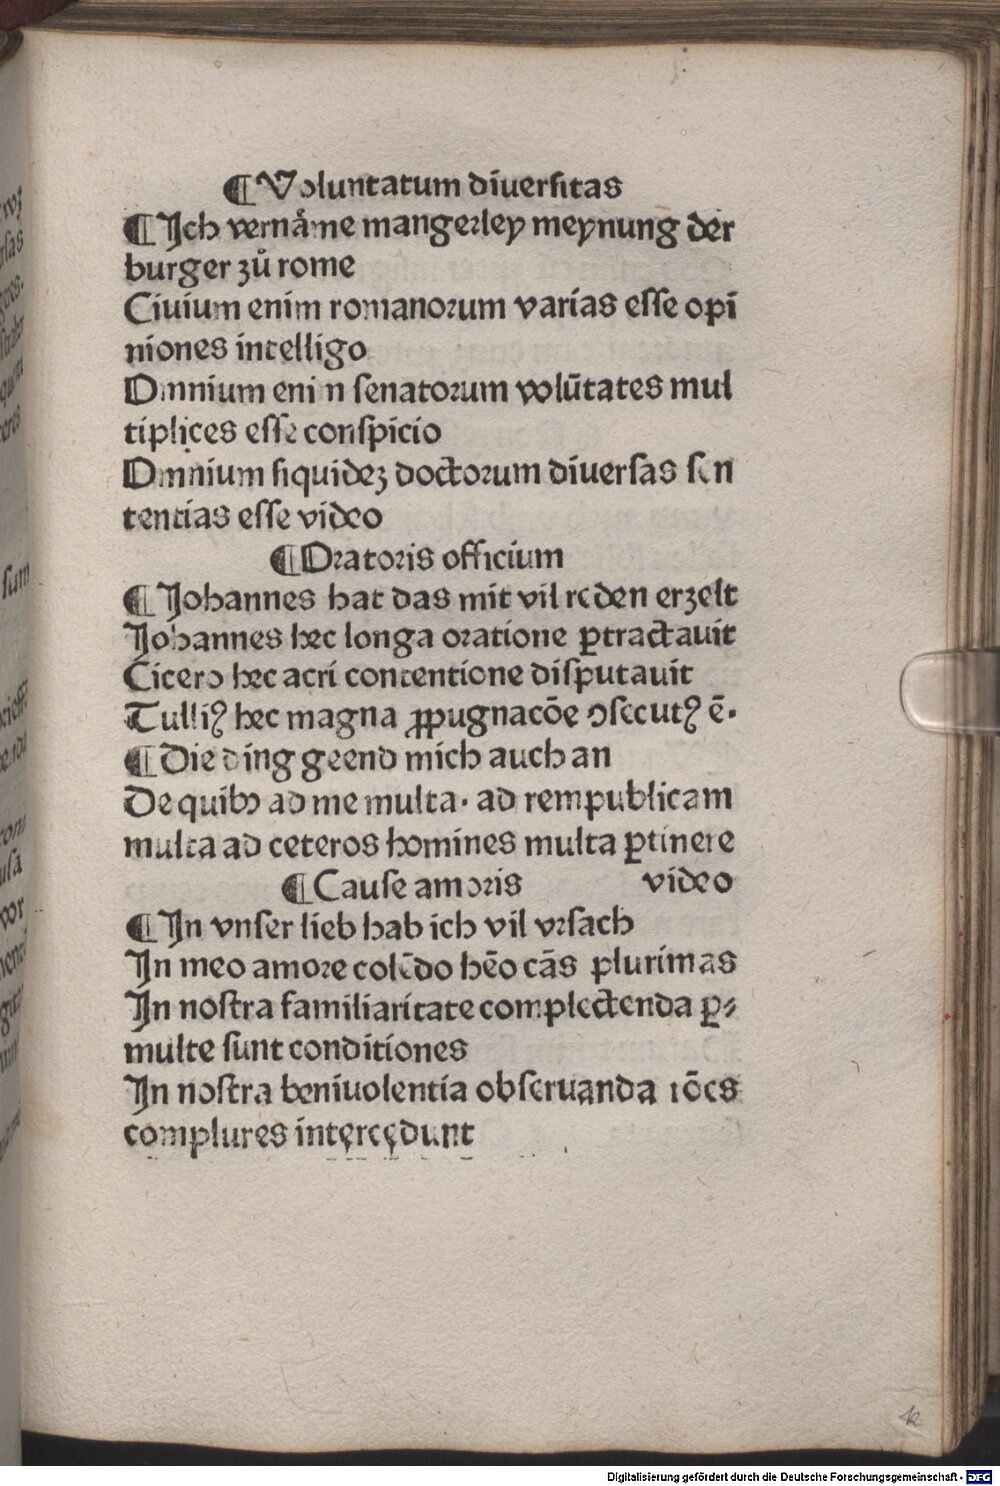 ¶ Voluntatum diuersitas
¶ Ich vernåme mangerley meynung der
burger zů rome
Ciuium enim romanorum varias esse opi
niones intelligo
Omnium enim senatorum volūtates mul
tiplices esse conspicio
Omnium siquideꝫ doctorum diuersas sen
tentias esse video
¶ Oratoris officium
¶ Johannes hat das mit vil reden erzelt
Johannes hec longa oratione ꝑtractauit
Cicero hec acri contentione disputauit
Tulliꝰ hec magna ꝓpugnacōe ↄsecutꝰ ē.
¶ Die ding geend mich auch an
De quibꝫ ad me multa. ad rempublicam
multa ad ceteros homines multa ꝑtinere
video
¶ Cause amoris
¶ In vnser lieb hab ich vil vrsach
In meo amore colēdo hēo cās plurimas
In nostra familiaritate complectenda ꝑ⸗
multe sunt conditiones
In nostra beniuolentia obseruanda rōes
complures intercedunt
k
Digitalisierung gefördert durch die Deutsche Forschungsgemeinschaft - DFG